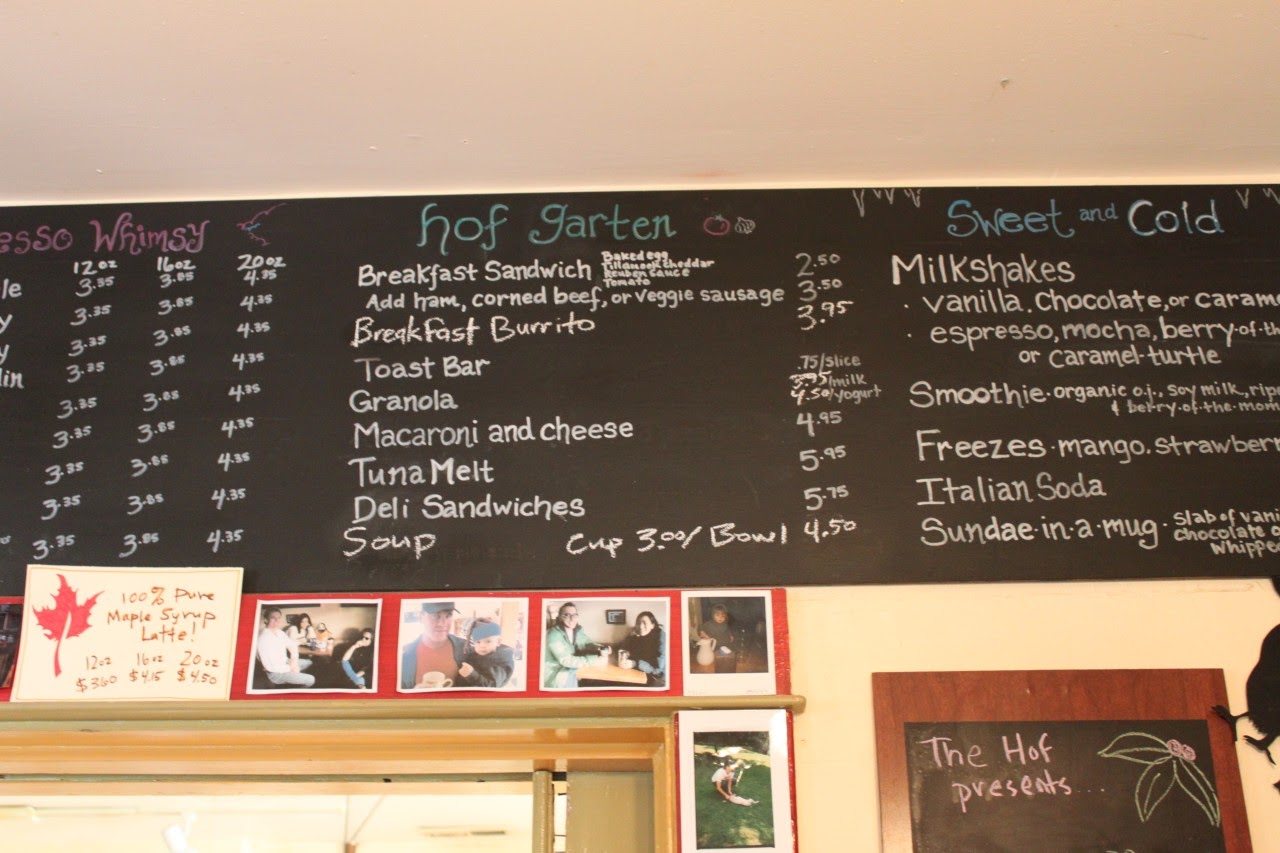 esso Whimsy
12oz 16oz 20oz
le 3.35 3.85 4.35
y 3.35 3.85 4.35
y 3.35 3.85 4.35
lin 3.35 3.85 4.35
3.35 3.85 4.35
3.35 3.85 4.35
3.35 3.85 4.35
3.35 3.85 4.35
3.35 3.85 4.35
hof garten
Breakfast Sandwich Baked egg 2.50
Tillamook cheddar
Reuben sauce
Tomato
Add ham, corned beef, or veggie sausage 3.50
Breakfast Burrito 3.95
Toast Bar .75/slice
Granola 3.75/milk
4.50/yogurt
Macaroni and cheese 4.95
Tuna Melt 5.95
Deli Sandwiches 5.75
Soup Cup 3.00/ Bowl 4.50
Sweet and Cold
Milkshakes
· vanilla, chocolate, or carame
· espresso, mocha, berry-of-th
or caramel-turtle
Smoothie · organic o.j., soy milk, rip
& berry-of-the-mom
Freezes · mango, strawber
Italian Soda
Sundae-in-a-mug · slab of vani
chocolate
whippe
100% Pure
Maple Syrup
Latte!
12oz 16oz 20oz
$3.60 $4.15 $4.50
The Hof
presents...